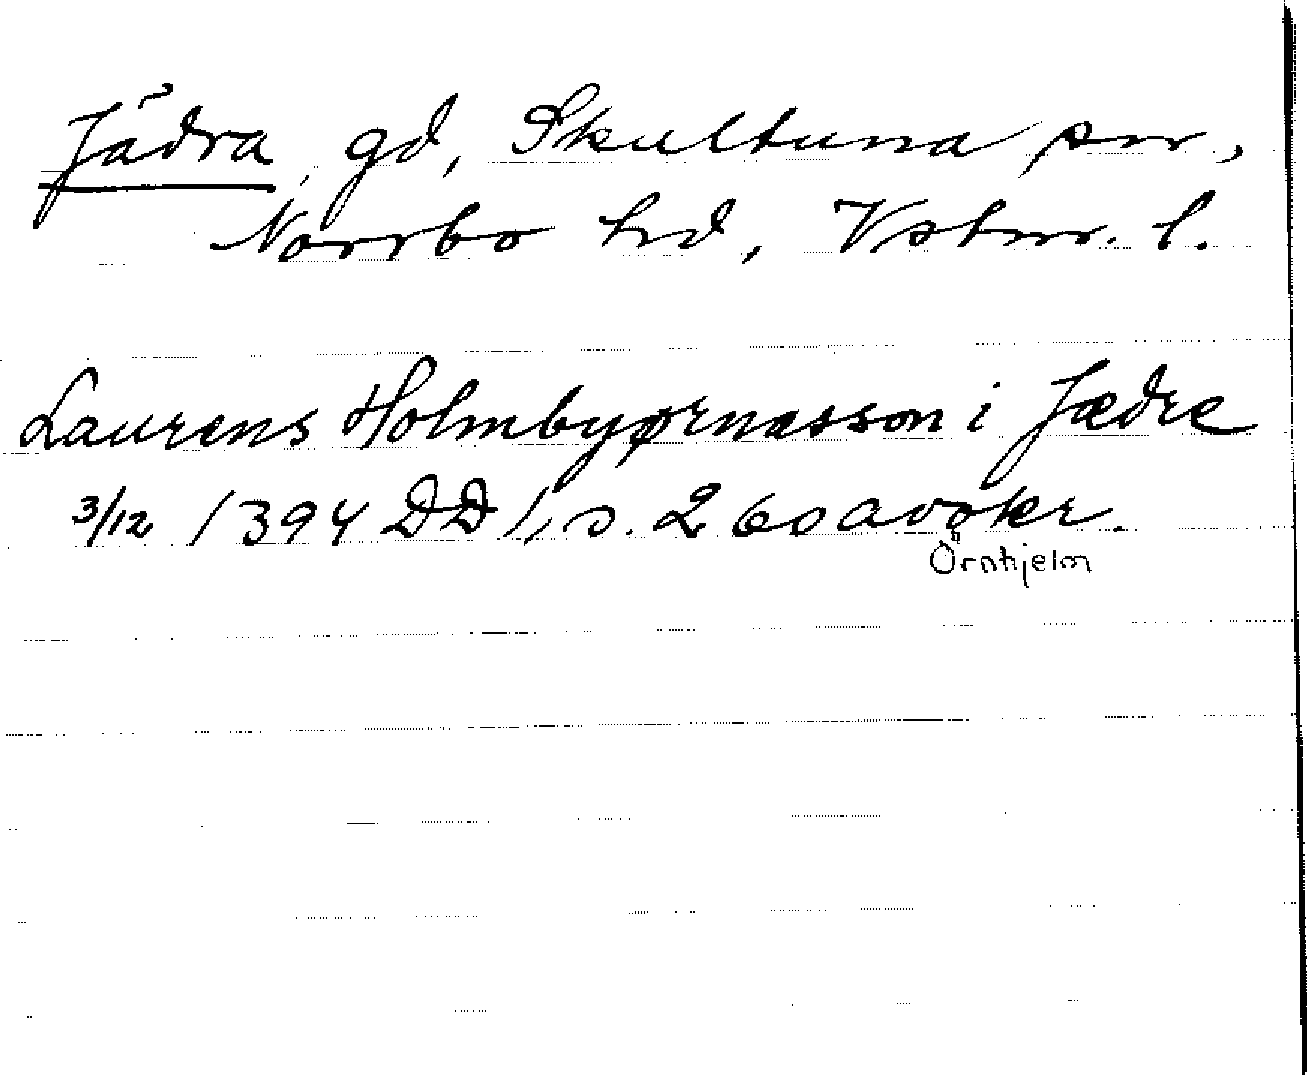 Jädra, gd, Skultuna sn,
Norrbo hd, Vstm. l.
Laurens Holmbyørnæsson i Jædre
3/12 1394 DD 1, s. 260 avskr.
Örnhjelm